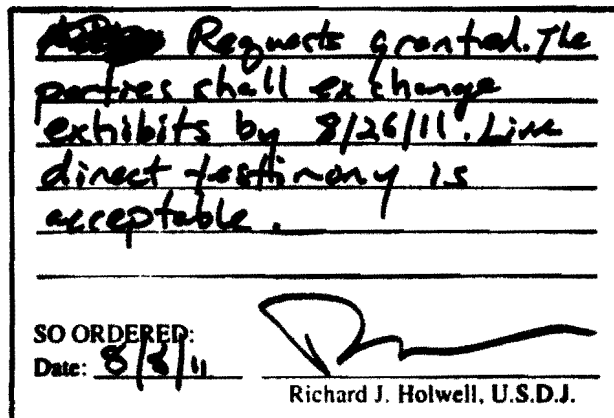 Requests granted. The
parties shall exchange
exhibits by 8/26/11. Live
direct testimony is
acceptable.
SO ORDERED:
Date: 8/8/11
Richard J. Holwell, U.S.D.J.